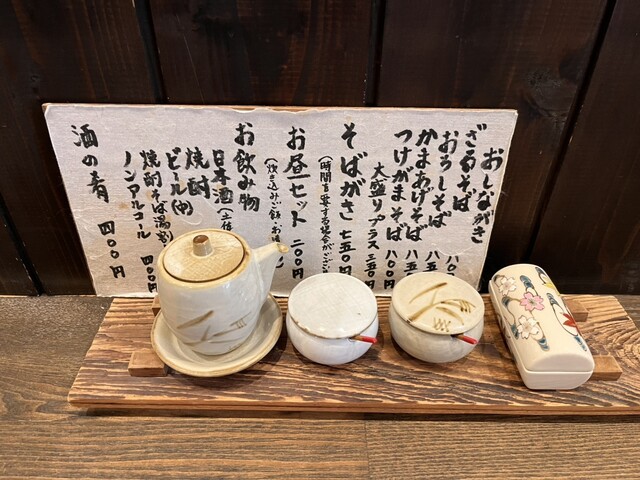 おしながき
ざるそば 八〇
おろしそば 八五
かまあげそば 八五
つけがまそば 八〇〇円
大盛りプラス 三五〇円
そばがき 七五〇円
(時間を要する場合がござい
お昼セット 二〇〇円
(炊き込みご飯・お
お飲み物
日本酒(土佐
焼酎
ビール(中)
焼酎そば湯割
ノンアルコール 四〇〇円
酒の肴 四〇〇円